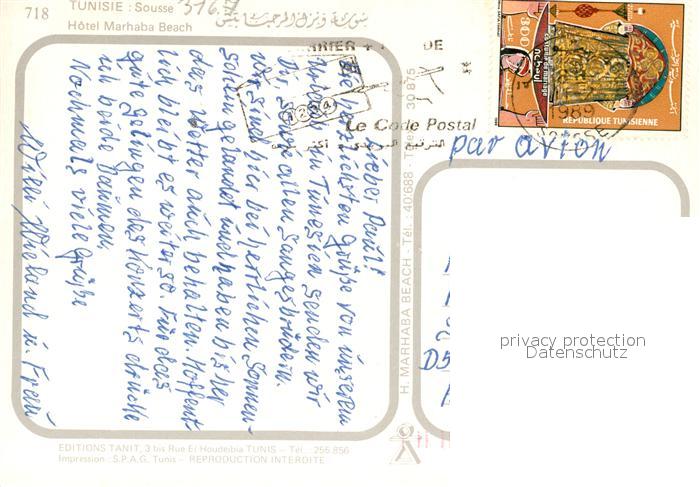 718
TUNISIE : Sousse
Hôtel Marhaba Beach
316.51
Le Code Postal
RÉPUBLIQUE TUNISIENNE
1989
par avion
Lieber Paul!
Die herzlichsten Grüße von unserem
Urlaub in Tunesien senden wir
Dir, sowie allen Sangesbrüdern.
Wir sind hier bei herrlichem Sonnen-
schein gelandet und haben bisher
das Wetter auch behalten. Hoffent-
lich bleibt es weiter so. Für das
gute Gelingen des Konzerts drücke
ich beide Daumen.
Nochmals viele Grüße
Willi Wieland u. Frau
H. MARHABA BEACH - Tél. : 40'688 - Télex 30 875
D5
privacy protection
Datenschutz
EDITIONS TANIT, 3 bis Rue El Houdeibia TUNIS – Tél. : 255.856
Impression : S.P.A.G. Tunis – REPRODUCTION INTERDITE